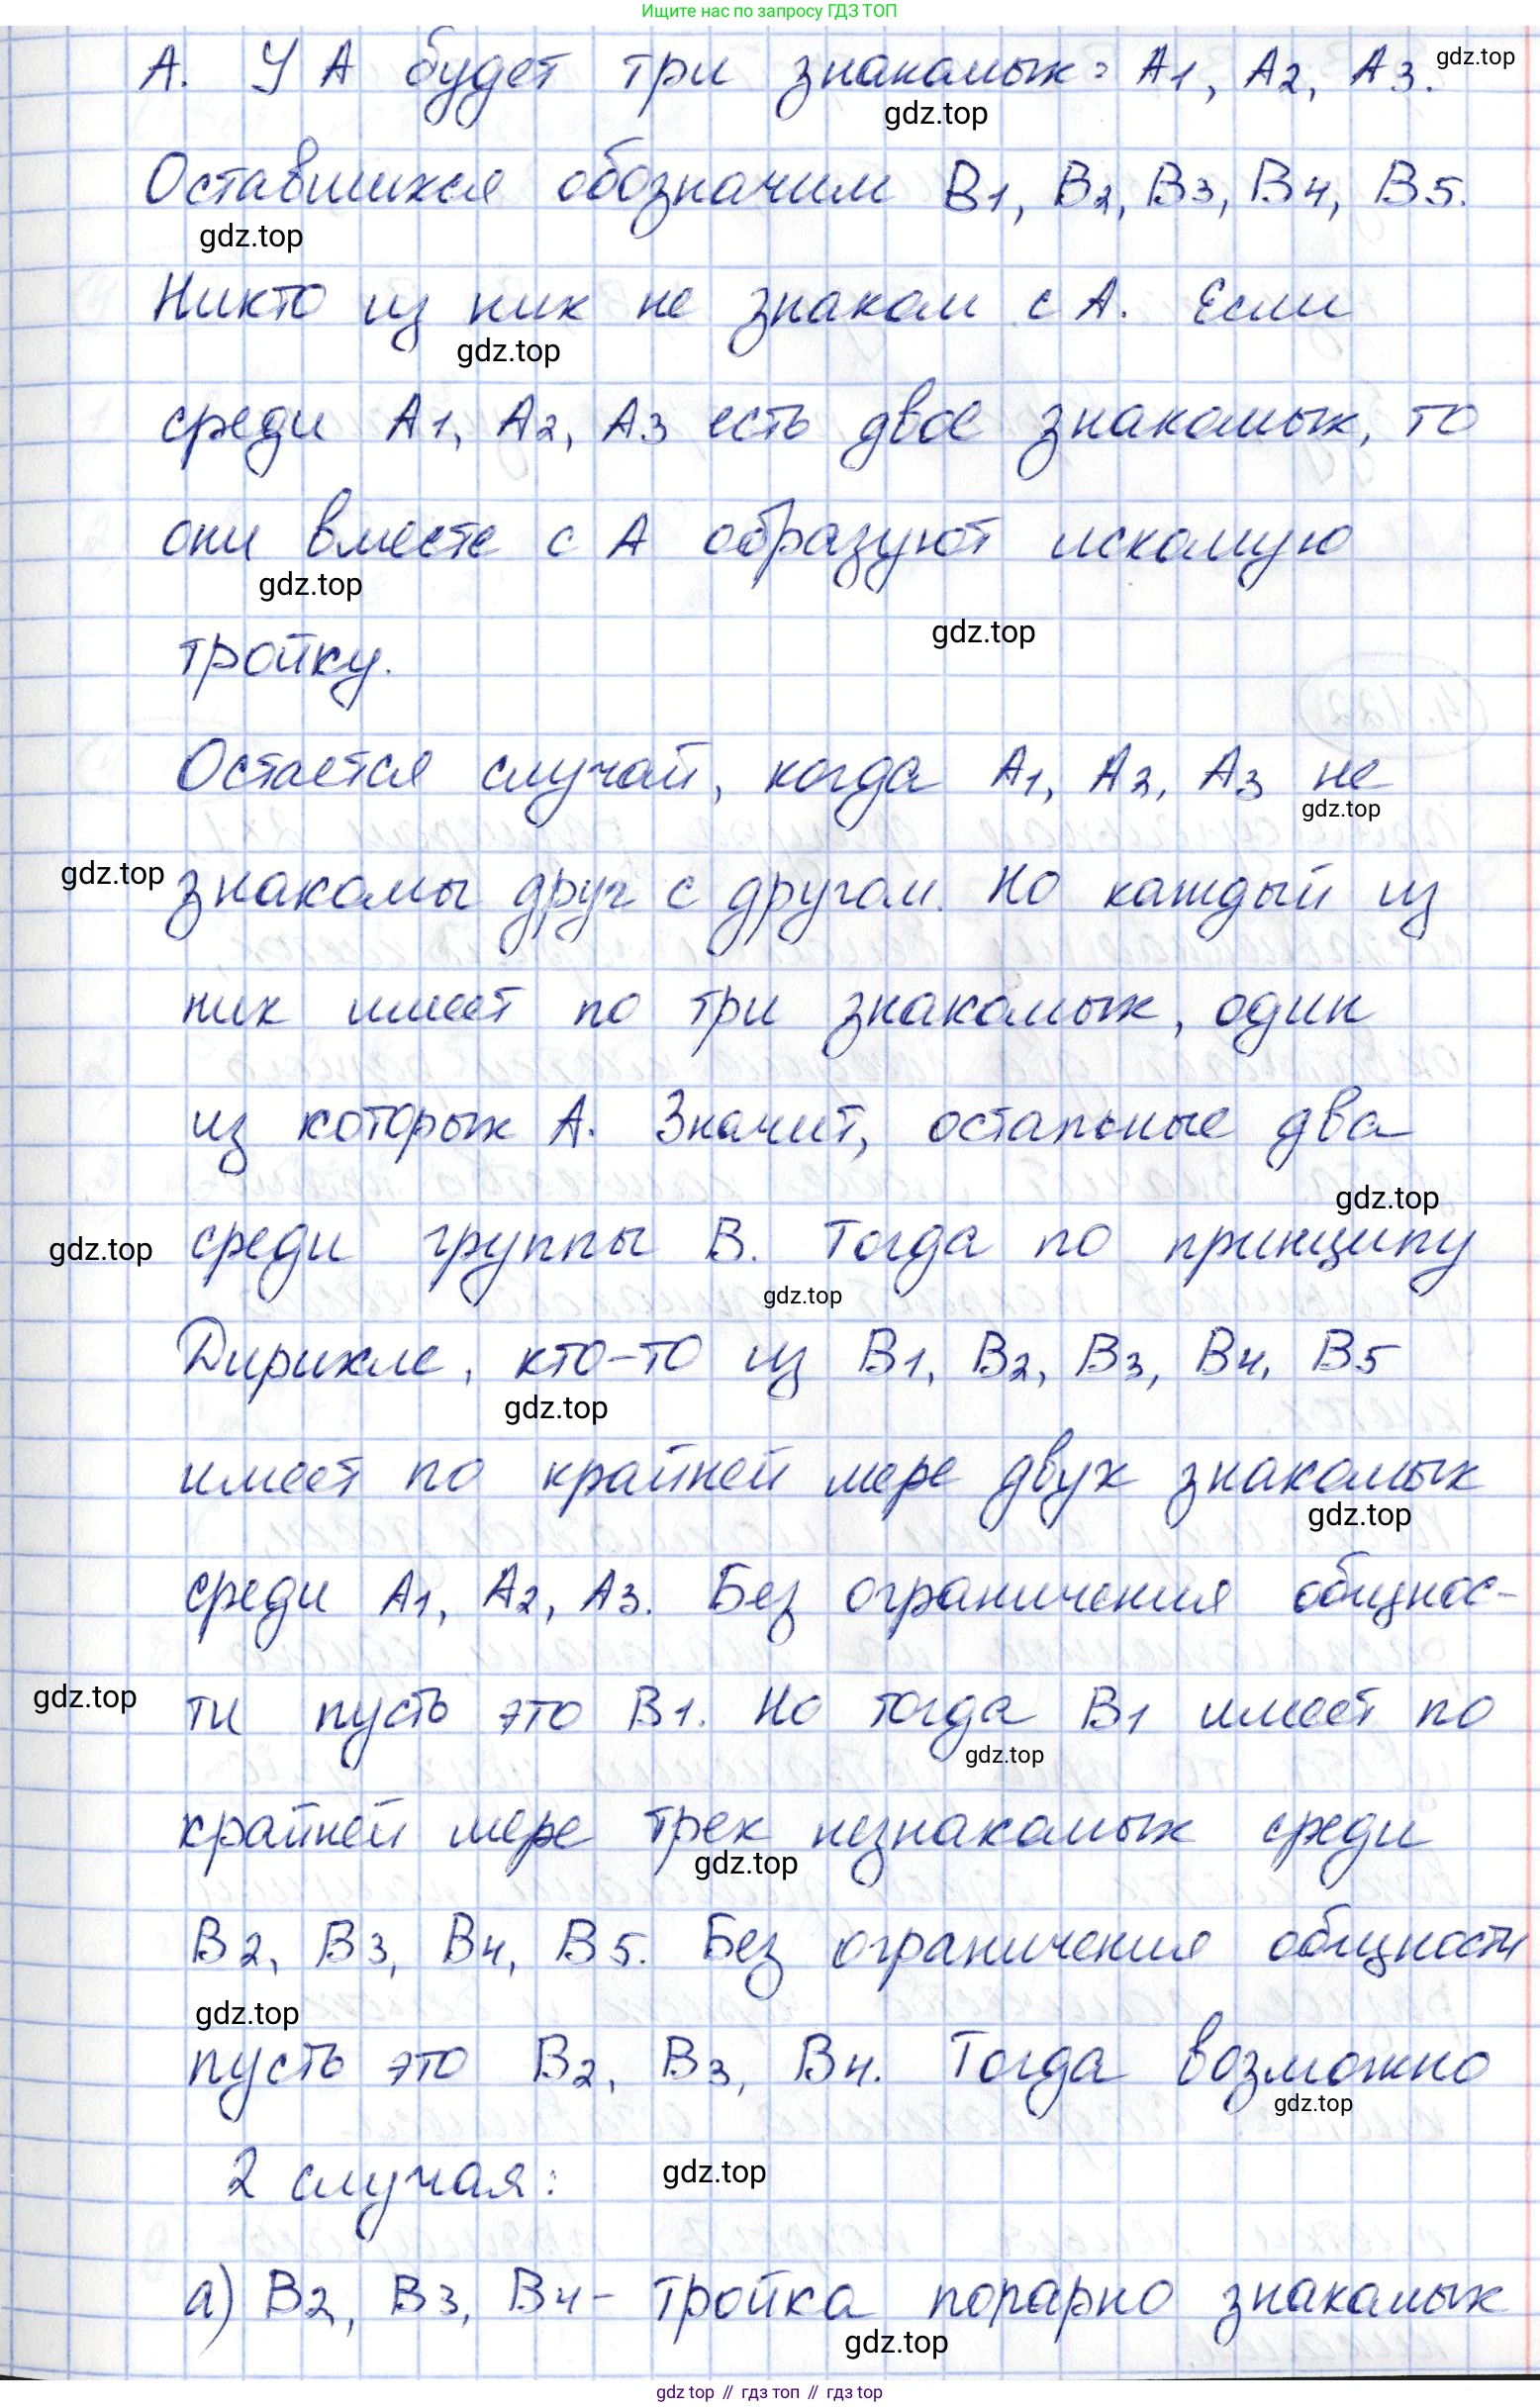 Ищите нас по запросу ГДЗ ТОП
А. У А будет три знакомых: А1, А2, А3.
gdz.top
gdz.top
Оставшихся обозначим В1, В2, В3, В4, В5.
gdz.top
Никто из них не знаком с А. Если
gdz.top
среди А1, А2, А3 есть двое знакомых, то
они вместе с А образуют искомую
gdz.top
gdz.top
тройку.
Остается случай, когда А1, А2, А3 не
gdz.top
gdz.top
знакомы друг с другом. Но каждый из
них имеет по три знакомых, один
из которых А. Значит, остальные два
gdz.top
gdz.top
среди группы В. Тогда по принципу
gdz.top
Дирихле, кто-то из В1, В2, В3, В4, В5
gdz.top
имеет по крайней мере двух знакомых
gdz.top
среди А1, А2, А3. Без ограничения общнос-
gdz.top
ти пусть это В1. Но тогда В1 имеет по
gdz.top
крайней мере трех незнакомых среди
gdz.top
В2, В3, В4, В5. Без ограничения общности
gdz.top
пусть это В2, В3, В4. Тогда возможно
gdz.top
2 случая:
gdz.top
а) В2, В3, В4 - тройка попарно знакомых
gdz.top
gdz top // гдз топ // гдз top